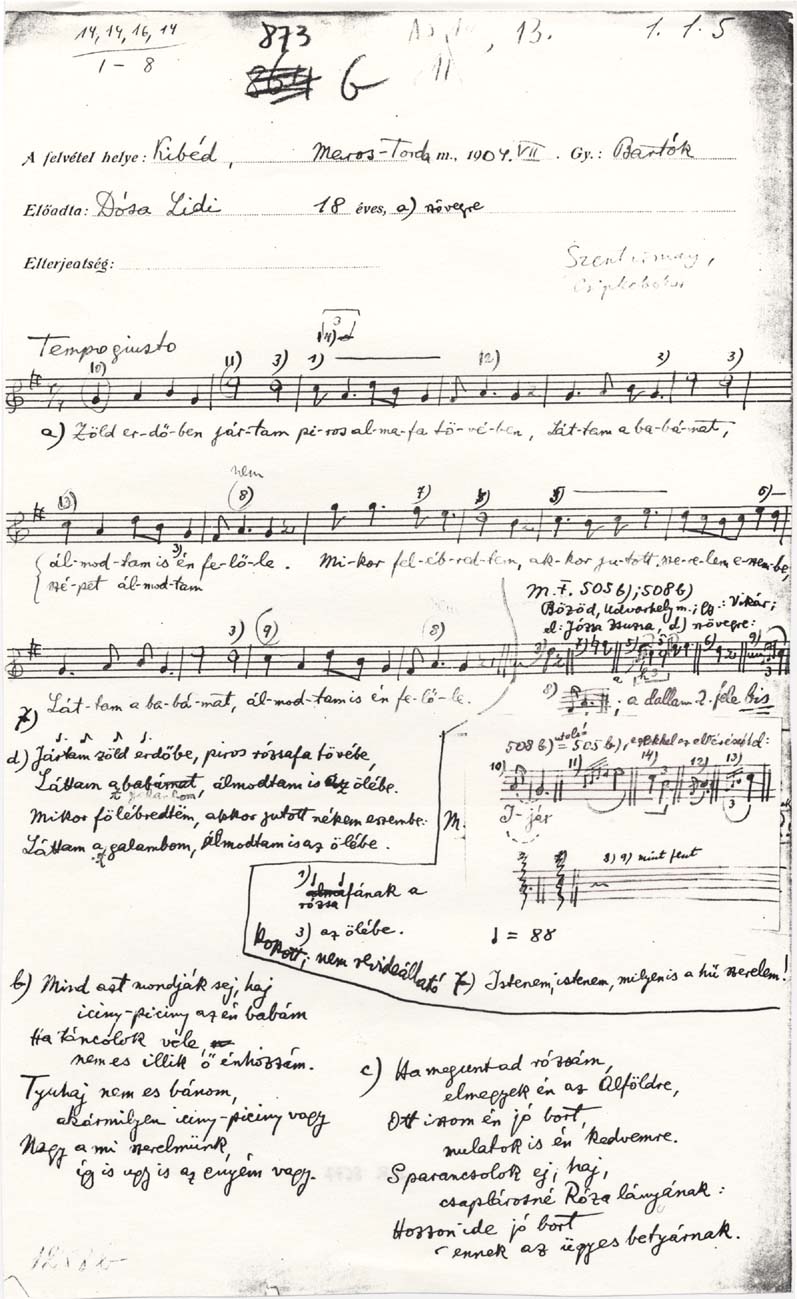 14, 14, 16, 14
873
, 13.
1. 1. 5
1 – 8
G
A felvétel helye: Kibéd, Maros-Torda m., 1904. VII. Gy.: Bartók
Előadta: Dósa Lidi 18 éves, a) szövegre
Elterjeatség:
Tempo giusto
10) 11) 3) 1) 12) 3) 3)
a) Zöld er-dő-ben jár-tam pi-ros al-ma-fa tö-vé-ben, Lát-tam a ba-bá-mat,
nem
13) 8) 7) 5)
ál-mod-tam is én fe-lő-le. Mi-kor fel-éb-red-tem, ak-kor ju-tott sze-re-lem e-szem-be,
szé-pet ál-mod-tam
M. F. 505 b); 508 b)
Bözöd, Udvarhely m.; Gy.: Vikár;
d) szövegre:
3) 9) 8)
Lát-tam a ba-bá-mat, ál-mod-tam is én fe-lő-le.
8) ; a dallam 2. féle bis
d) Jártam zöld erdőbe, piros rózsafa tövébe,
Láttam a babámat, álmodtam is az ölébe.
Mikor fölébredtem, akkor jutott nékem eszembe:
Láttam a galambom, álmodtam is az ölébe.
utolsó
508 b) = 505 b),
10) 11) 14) 12) 13)
I-jár
M.
8) 9) mint fent
♩ = 88
1) fának a
rózsa
3) az ölébe.
kopott; nem revideálható
Istenem, istenem, milyen is a hű szerelem!
b) Mind azt mondják sej, haj
iciny-piciny az én babám
Ha táncolok véle
nem es illik ő énhozzám.
Tyuhaj nem es bánom,
akármilyen iciny-piciny vagy
Nagy a mi szerelmünk,
így is ugy is az enyém vagy.
c) Ha meguntad rózsám,
elmegyek én az Álföldre,
Ott iszom én jó bort,
mulatok is én kedvemre.
S parancsolok ej, haj,
csaplárosné Róza lányának:
Hozzon ide jó bort
ennek az ügyes betyárnak.